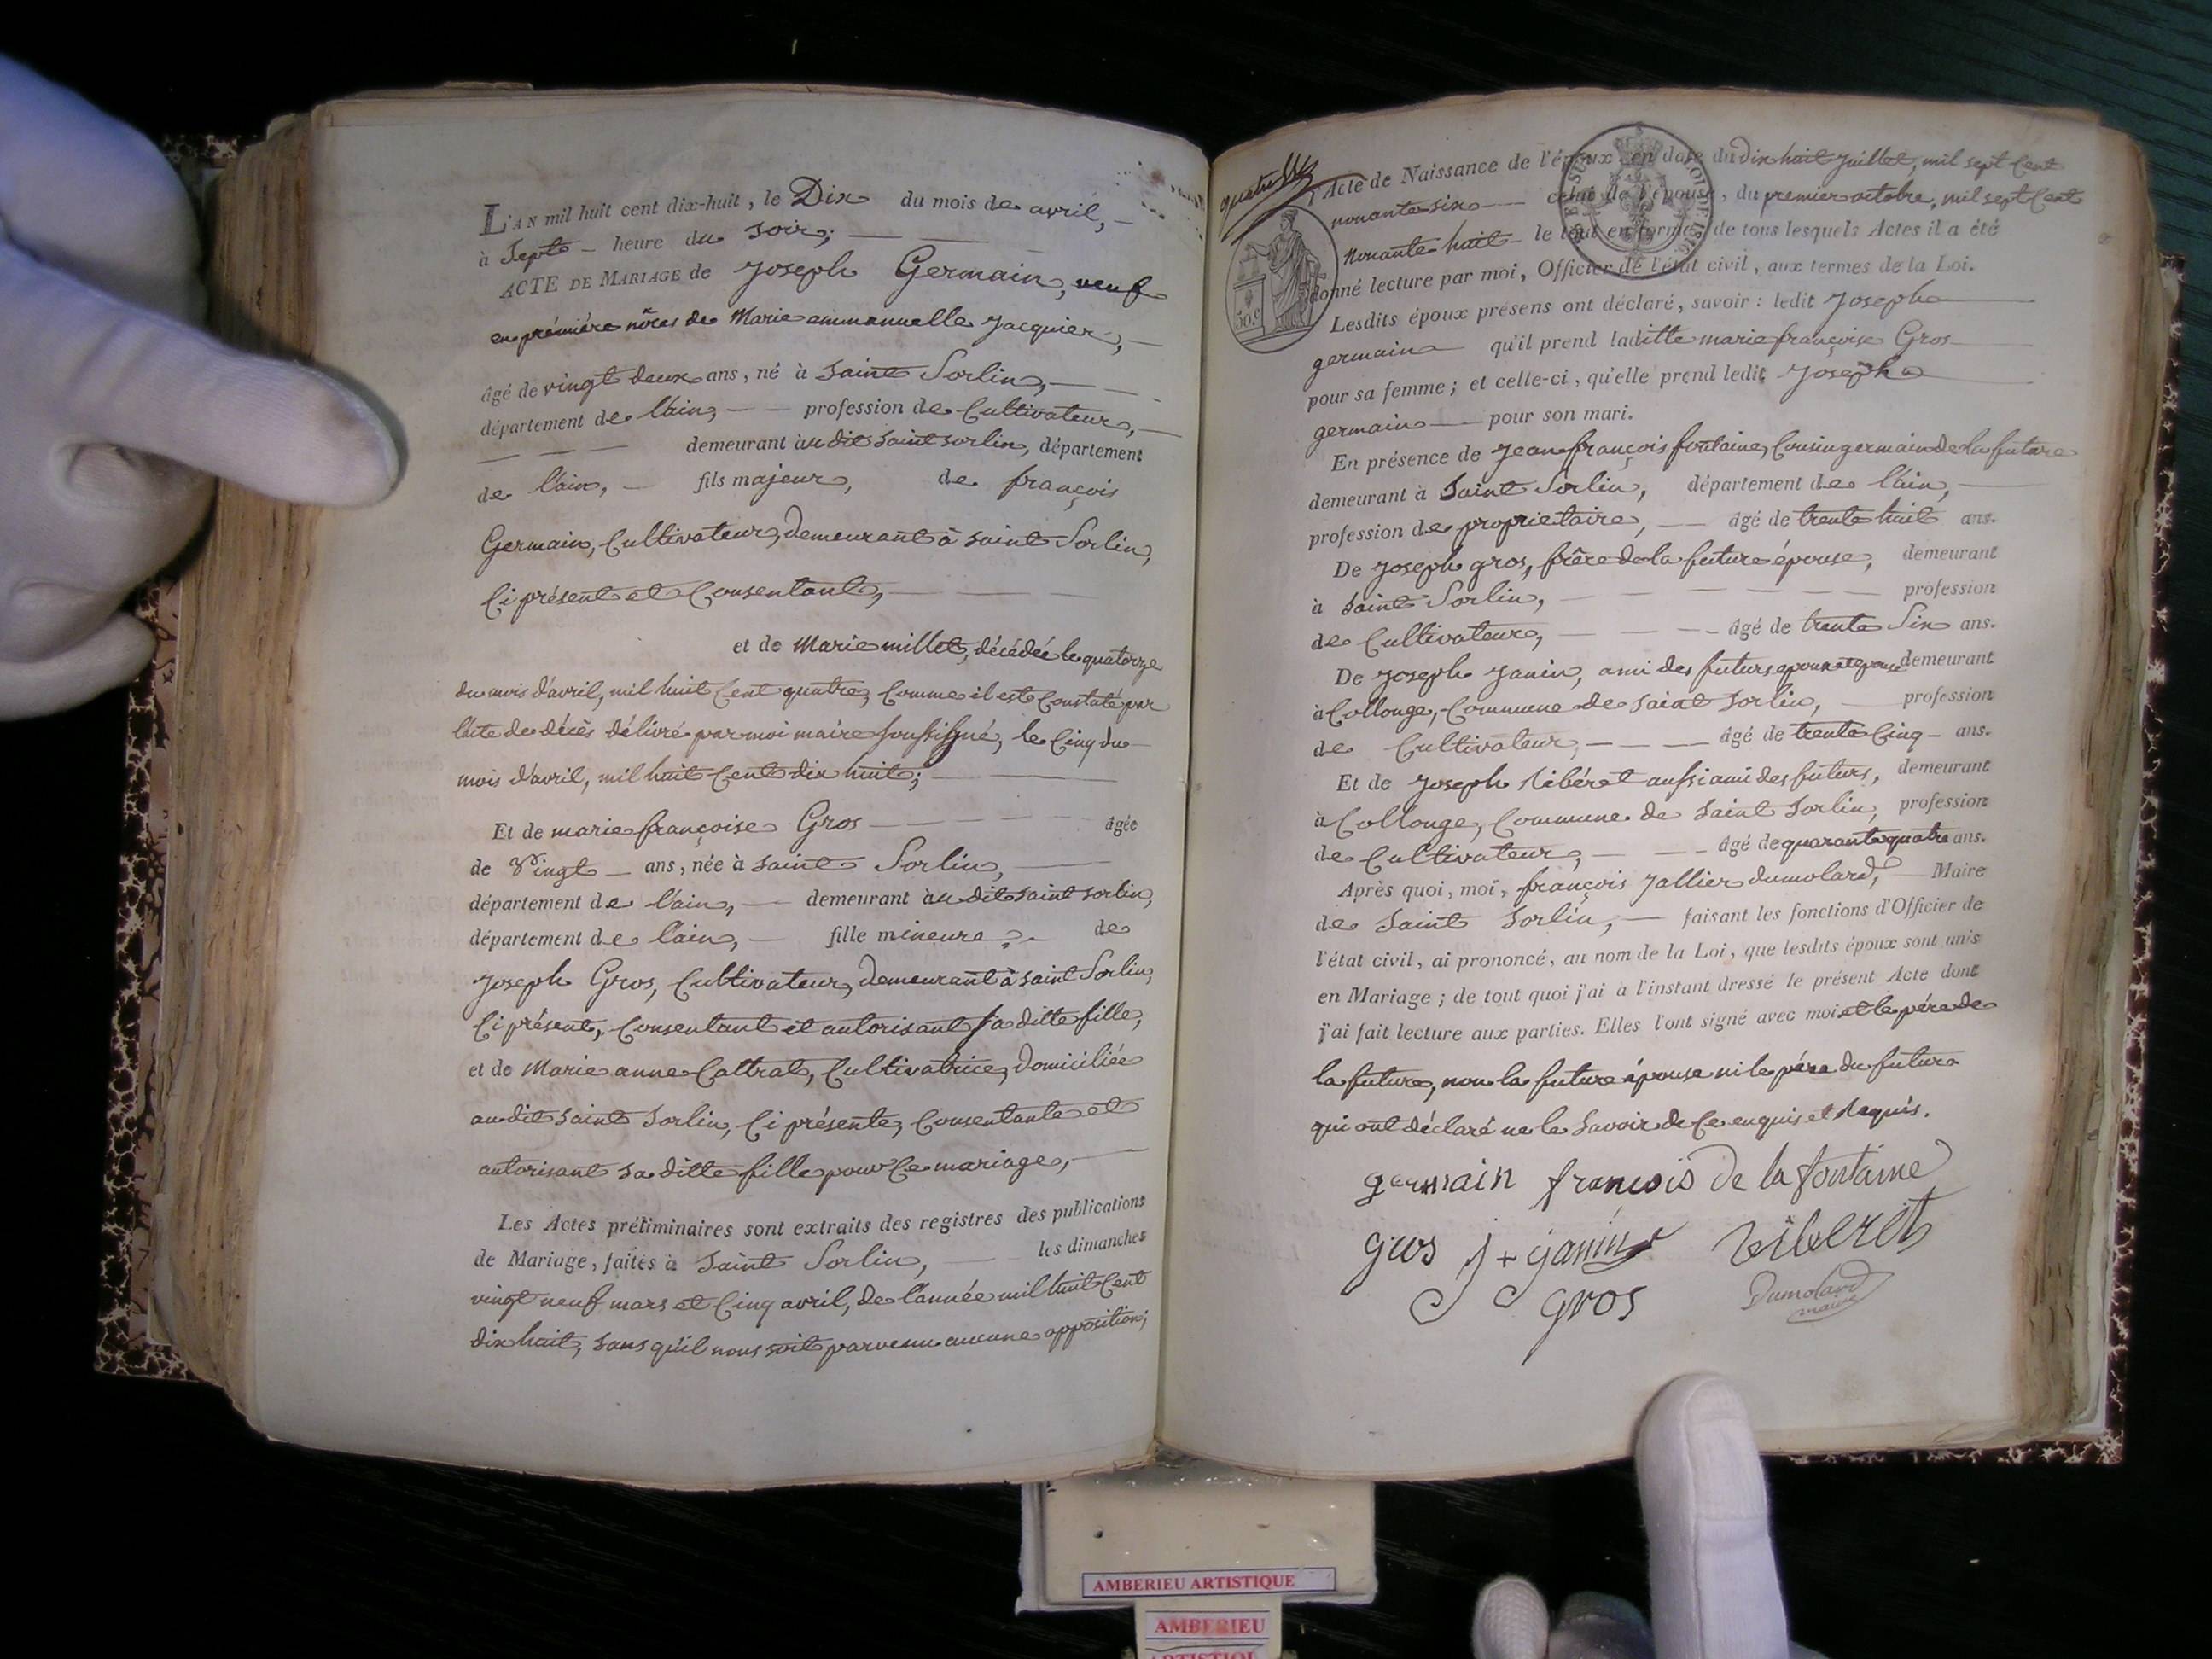 L'AN mil huit cent dix-huit, le Dix du mois de avril,
à Sept heure du soir;
ACTE DE MARIAGE de Joseph Germain, veuf
en première nôces de Marie emmanuelle Jacquier,
âgé de vingt deux ans, né à Saint Sorlin,
département de l'ain, profession de Cultivateur,
demeurant au dit Saint Sorlin, département
de l'ain, fils majeur, de françois
Germain, Cultivateur, demeurant à saint Sorlin,
Ci présent et Consentant,
et de Marie millet, décédée le quatorze
du mois d'avril, mil huit Cent quatre, Comme il est Constaté par
l'acte de décès délivré par moi maire soussigné, le Cinq du
mois d'avril, mil huit Cent dix huit;
Et de marie françoise Gros âgée
de Vingt ans, née à Saint Sorlin,
département de l'ain, demeurant au dit Saint Sorlin,
département de l'ain, fille mineure, de
Joseph Gros, Cultivateur, demeurant à saint Sorlin,
Ci présent, Consentant et autorisant sa ditte fille,
et de Marie anne Cattrat, Cultivatrice, domiciliée
au dit Saint Sorlin, Ci présente, Consentante et
autorisant sa ditte fille pour Ce mariage,
Les Actes préliminaires sont extraits des registres des publications
de Mariage, faites à Saint Sorlin, les dimanches
vingt neuf mars et Cinq avril, de l'année mil huit Cent
dix huit, sans qu'il nous soit parvenu aucune opposition;
l'Acte de Naissance de l'époux en date du Dix huit Juillet, mil sept Cent
nonante six celui de l'épouse, du premier octobre, mil sept Cent
Nonante huit le tout en forme; de tous lesquels Actes il a été
donné lecture par moi, Officier de l'état civil, aux termes de la Loi.
50.c
Lesdits époux présens ont déclaré, savoir: ledit Joseph
germain qu'il prend laditte marie françoise Gros
pour sa femme; et celle-ci, qu'elle prend ledit Joseph
germain pour son mari.
En présence de Jean françois fontaine, Cousin germain de la future
demeurant à Saint Sorlin, département de l'ain,
profession de proprietaire, âgé de trente huit ans.
De Joseph gros, frère de la future épouse, demeurant
à Saint Sorlin, profession
de Cultivateur, âgé de trente Six ans.
De Joseph Janin, ami des futurs epoux et epouse demeurant
à Collonge, Commune de Saint Sorlin, profession
de Cultivateur, âgé de trente Cinq ans.
Et de Joseph Ribéret aussi ami des futurs, demeurant
à Collonge, Commune de Saint Sorlin, profession
de Cultivateur, âgé de quarante quatre ans.
Après quoi, moi, françois Jallier dumolard, Maire
de Saint Sorlin, faisant les fonctions d'Officier de
l'état civil, ai prononcé, au nom de la Loi, que lesdits époux sont unis
en Mariage; de tout quoi j'ai à l'instant dressé le présent Acte dont
j'ai fait lecture aux parties. Elles l'ont signé avec moi et le père de
la future, non la future épouse ni le père du futur
qui ont déclaré ne le Savoir de Ce enquis et Requis.
germain françois De la fontaine
gros j + janin Riberet
gros Dumolard
maire
AMBERIEU ARTISTIQUE
AMBERIEU
ARTISTIQUE